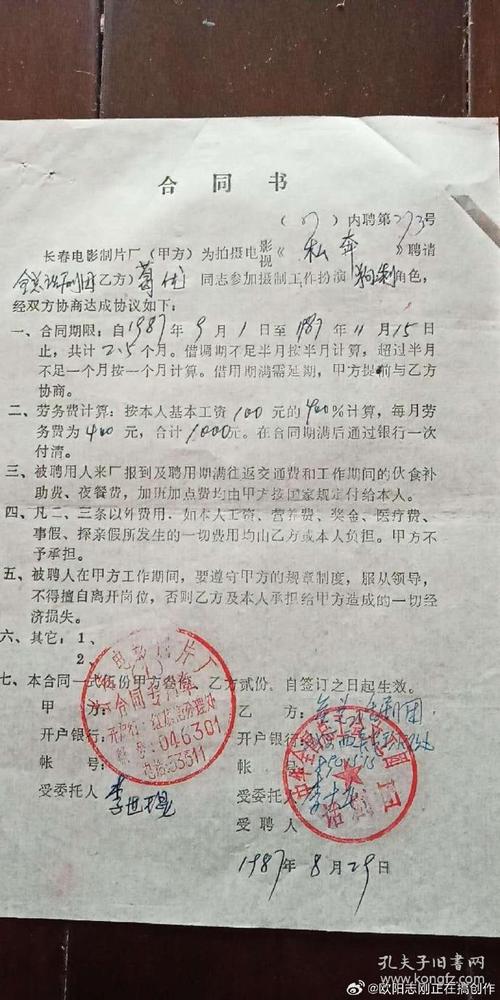 合同书
(87)内聘第273号
长春电影制片厂(甲方)为拍摄电影视《私奔》聘请
全总话剧团(乙方)葛优同志参加摄制工作扮演 角色,
经双方协商达成协议如下:
一、合同期限:自1987年9月1日至1987年11月15日
止,共计2.5个月。借调期不足半月按半月计算,超过半月
不足一个月按一个月计算。借用期满需延期,甲方提前与乙方
协商。
二、劳务费计算:按本人基本工资100元的400%计算,每月劳
务费为400元,合计1000元。在合同期满后通过银行一次
付清。
三、被聘用人来厂报到及聘用期满往返交通费和工作期间的伙食补
助费、夜餐费,加班加点费均由甲方按国家规定付给本人。
四、凡二、三条以外费用,如本人工资、营养费、奖金、医疗费、
事假、探亲假所发生的一切费用均由乙方或本人负担。甲方不
予承担。
五、被聘人在甲方工作期间,要遵守甲方的规章制度,服从领导,
不得擅自离开岗位,否则乙方及本人承担给甲方造成的一切经
济损失。
六、其它:1、
2、
七、本合同一式伍份甲方叁份,乙方贰份。自签订之日起生效。
甲方:
乙方:全总话剧团
开户银行:
开户银行:
帐号:
帐号:
受委托人
受委托人
受聘人
1987年8月29日
电影制片厂
合同专用章
046301
电话:53311
话剧团
孔夫子旧书网
www.kongfz.com
@欧阳志刚正在搞创作